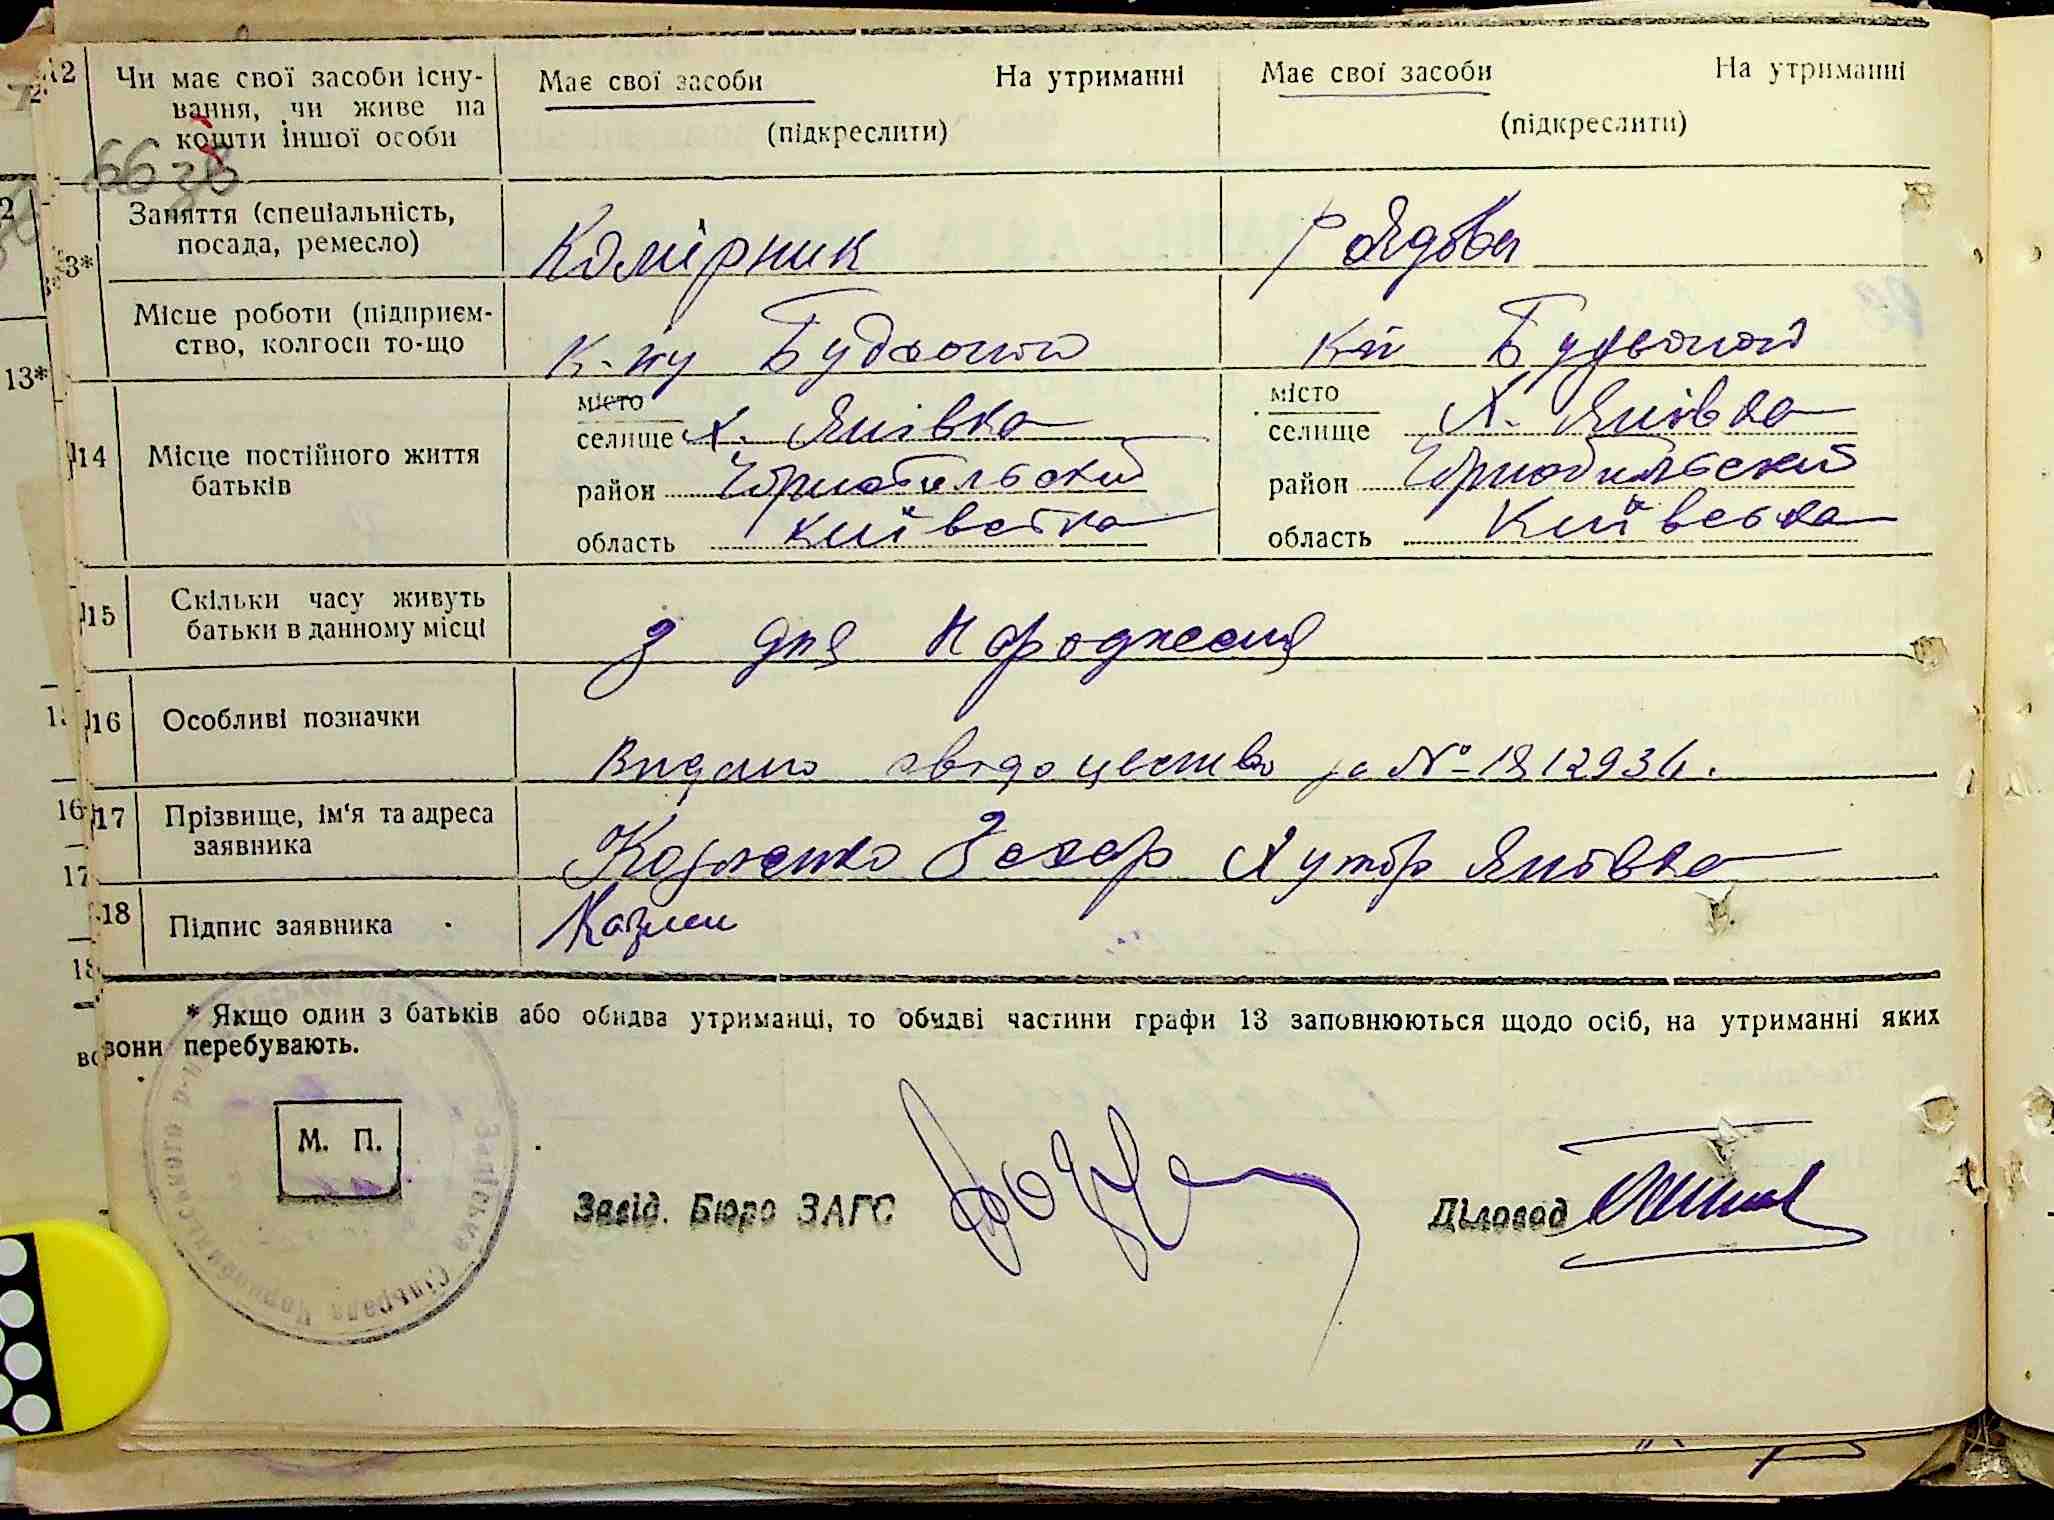 12 Чи має свої засоби існу-
вання, чи живе на
кошти іншої особи
Має свої засоби На утриманні
(підкреслити)
Має свої засоби На утриманні
(підкреслити)
Заняття (спеціальність,
посада, ремесло)
Комірник
Рядова
13*
Місце роботи (підприєм-
ство, колгосп то-що
к-пу Будьоного
к-п Будьоної
14 Місце постійного життя
батьків
місто
селище х. Янівка
район Чорнобильский
область Київська
місто
селище х. Янівка
район Чорнобильский
область Київська
15 Скільки часу живуть
батьки в данному місці
з дня народження
16 Особливі позначки
Видано свідоцтво за №
17 Прізвище, ім'я та адреса
заявника
Козленко Захар Хутір Янівка
18 Підпис заявника
Козлен
* Якщо один з батьків або обидва утриманці, то обидві частини графи 13 заповнюються щодо осіб, на утриманні яких
вони перебувають.
М. П.
Завід. Бюро ЗАГС
Діловод
Сільрада